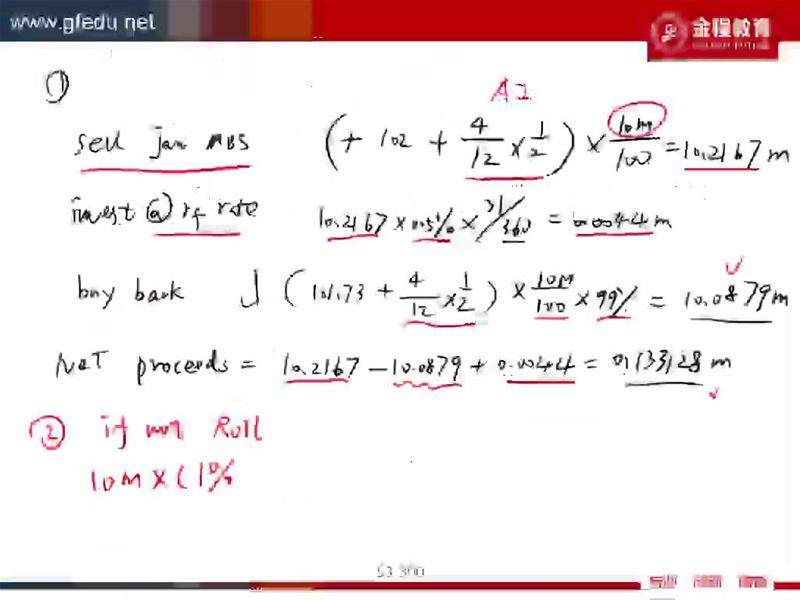 www.gfedu.net
金程教育
①
AI
sell jan MBS (+ 102 + 4/12 × 1/2) × 10M/100 = 10.2167 m
invest @ rf rate 10.2167 × 0.5% × 31/360 = 0.0044 m
buy back (101.73 + 4/12 × 1/2) × 10M/100 × 99% = 10.0879 m
NeT proceeds = 10.2167 - 10.0879 + 0.0044 = 0.133128 m
② if not Roll
10M × (1%
53-300